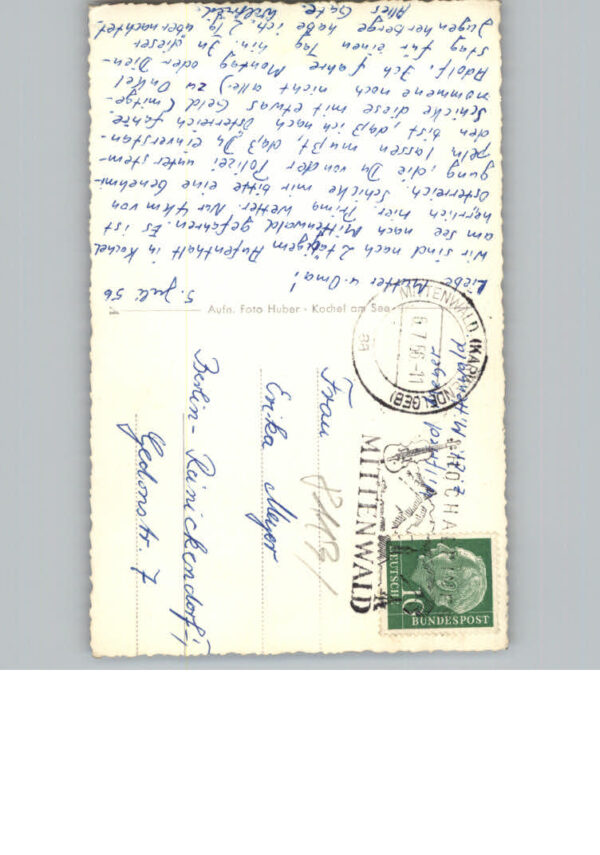 5. Juli 56
Liebe Mutter u. Oma!
Wir sind nach 2 tägigem Aufenthalt in Kochel
am See nach Mittenwald gefahren. Es ist
herrlich hier. Prima Wetter. Nur 4 km von
Österreich. Schicke mir bitte eine Genehmi-
gung, die Du von der Polizei unterstem-
peln lassen mußt, daß Du einverstan-
den bist, daß ich nach Österreich fahre.
Schicke diese mit etwas Geld (mitge-
nommene noch nicht alle,) zu Onkel
Adolf. Ich fahre Montag oder Dien-
stag für einen Tag hin. In dieser
Jugenherberge habe ich 2 Tg. übernachtet
Alles Gute Wilfried.
Aufn. Foto Huber - Kochel am See
MITTENWALD (KARWENDELGEB)
6.7.56-11
MITTENWALD
DEUTSCHE
BUNDESPOST
10
Wilfried Meyer
Frau
Erika Meyer
Berlin-Reinickendorf-1
Gedonstr. 7